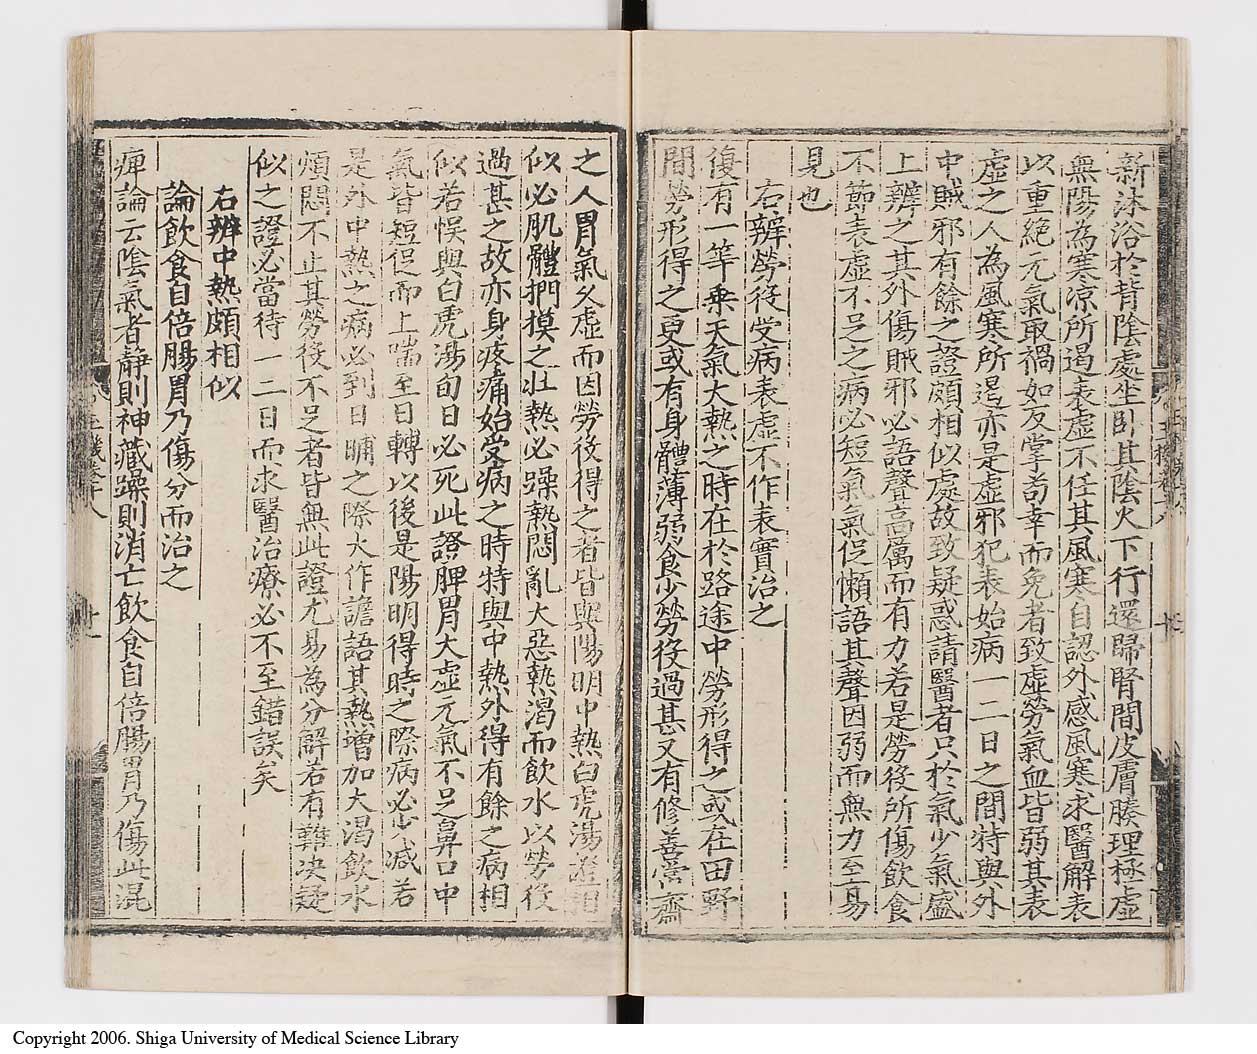 新沐浴於背陰處坐卧其陰火下行還歸腎間皮膚腠理極虛
無陽為寒凉所遏表虛不任其風寒自認外感風寒求醫解表
以重絕元氣取禍如反掌苟幸而免者致虛勞氣血皆弱其表
虛之人為風寒所遏亦是虛邪犯表始病一二日之間特與外
中賊邪有餘之證頗相似處故致疑惑請醫者只於氣少氣盛
上辨之其外傷賊邪必語聲高厲而有力若是勞役所傷飲食
不節表虛不足之病必短氣氣促懶語其聲困弱而無力至易
見也
右辨勞役受病表虛不作表實治之
復有一等乘天氣大熱之時在於路途中勞形得之或在田野
間勞形得之更或有身體薄弱食少勞役過甚又有修善常齋
之人胃氣久虛而因勞役得之者皆與陽明中熱白虎湯證相
似必肌體捫摸之壯熱必躁熱悶亂大惡熱渴而飲水以勞役
過甚之故亦身疼痛始受病之時特與中熱外得有餘之病相
似若悮與白虎湯旬日必死此證脾胃大虛元氣不足鼻口中
氣皆短促而上喘至日轉以後是陽明得時之際病必少减若
是外中熱之病必到日晡之際大作譫語其熱增加大渴飲水
煩悶不止其勞役不足者皆無此證尤易為分解若有難決疑
似之證必當待一二日而求醫治療必不至錯誤矣
右辨中熱頗相似
論飲食自倍腸胃乃傷分而治之
痺論云陰氣者靜則神藏躁則消亡飲食自倍腸胃乃傷此混
Copyright 2006. Shiga University of Medical Science Library